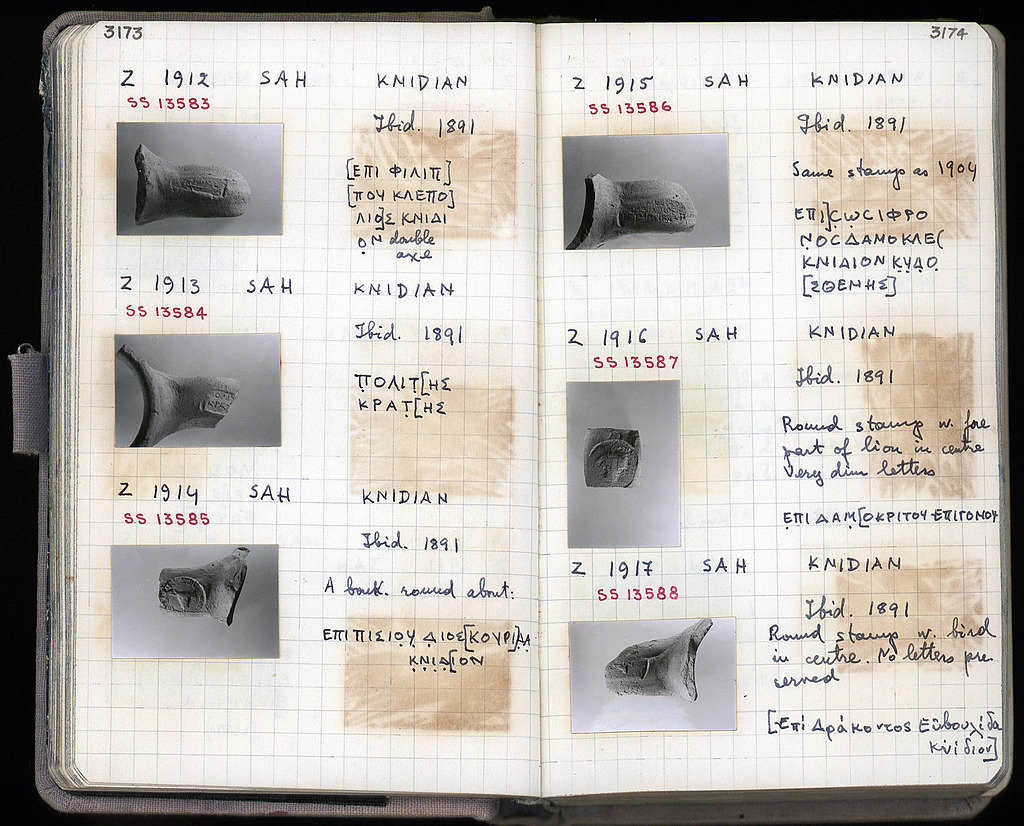 3173
Z 1912 SAH KNIDIAN
SS 13583
Ibid. 1891
[ΕΠΙ ΦΙΛΙΠ]
[ΠΟΥ ΚΛΕΠΟ]
ΛΙΟ̣]Σ ΚΝΙΔΙ
Ο̣Ν double
axe
Z 1913 SAH KNIDIAN
SS 13584
Ibid. 1891
Π̣ΟΛΙΤ̣[ΗΣ
ΚΡΑΤ̣[ΗΣ
Z 1914 SAH KNIDIAN
SS 13585
Ibid. 1891
A round about:
ΕΠΙ ΠΙΣΙΟΥ Δ̣ΙΟΣ[ΚΟΥΡΙ]Δ̣Α
Κ̣Ν̣Ι̣Δ̣[ΙΟΝ
3174
Z 1915 SAH KNIDIAN
SS 13586
Ibid. 1891
Same stamp as 1904
ΕΠΙ]Ϲ̣ΩϹΙΦΡΟ
Ν̣ΟϹΔΑΜΟΚΛΕϹ
ΚΝΙΔΙΟΝ Κ̣Υ̣Δ̣Ο̣
[ΣΘΕΝΗΣ]
Z 1916 SAH KNIDIAN
SS 13587
Ibid. 1891
Round stamp w. fore
part of lion in centre
Very dim letters
Ε̣ΠΙ ΔΑΜ̣[ΟΚΡΙΤΟΥ ΕΠΙΓΟΝΟΥ
Z 1917 SAH KNIDIAN
SS 13588
Ibid. 1891
Round stamp w. bird
in centre. No letters pre
served
[Επί Δράκοντος Εὐβουλίδα
Κνίδιον]